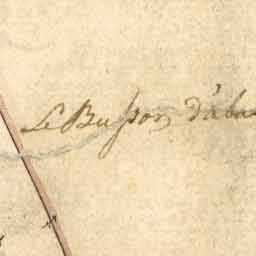 Le Buſson d'aba